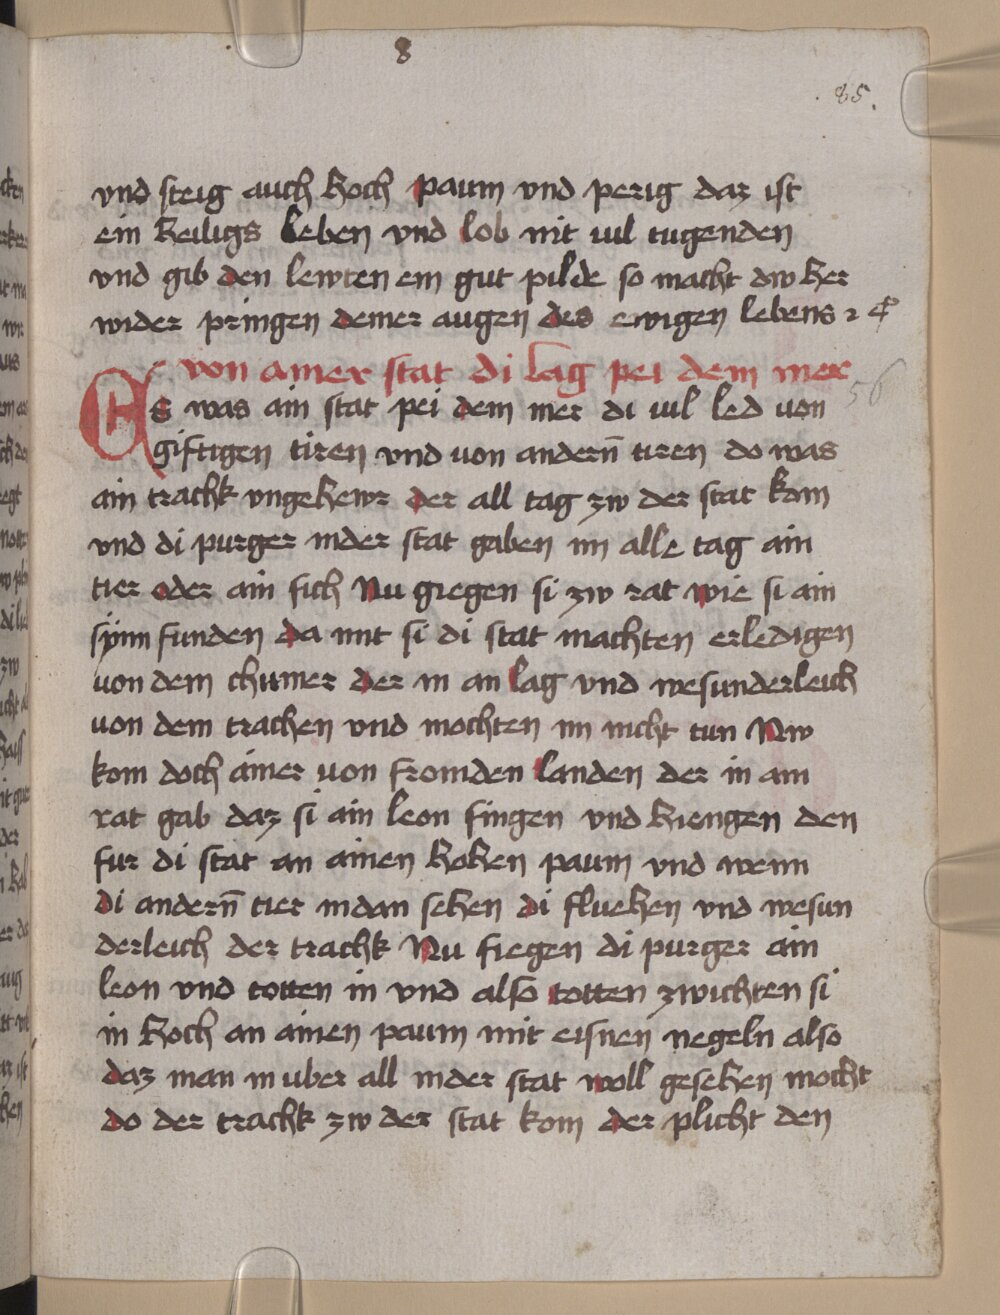 8
85.
vnd steig auch hoch paum vnd perig daz ist
ein heiligs leben vnd lob mit uil tugenden
vnd gib den lewten ein gut pilde so macht dw her
wider pringen deiner augen des ewigen lebens ꝛ
von ainer stat di lag pei dem mer
56
Es was ain stat pei dem mer di uil led von
giftigen tiren vnd uon andern̄ tiren do was
ain trachk vngehewr der all tag zw der stat kom
vnd di purger inder stat gaben im alle tag ain
tier oder ain fich Nu giegen si zw rat wie si ain
synn funden da mit si di stat machten erledigen
uon dem chumer der in an lag vnd wesunderleich
uon dem trachen vnd mochten im nicht tun Nw
kom doch ainer uon fromden landen der in ain
rat gab daz si ain leon fingen vnd hiengen den
fur di stat an ainen hohen paum vnd wenn
di andern̄ tier in dan sehen di fluehen vnd wesun
derleich der trachk Nu fiegen di purger ain
leon vnd totten in vnd also totten zwichten si
in hoch an ainen paum mit eisnen negeln also
daz man in uber all inder stat woll gesehen mocht
do der trachk zw der stat kom der plicht den